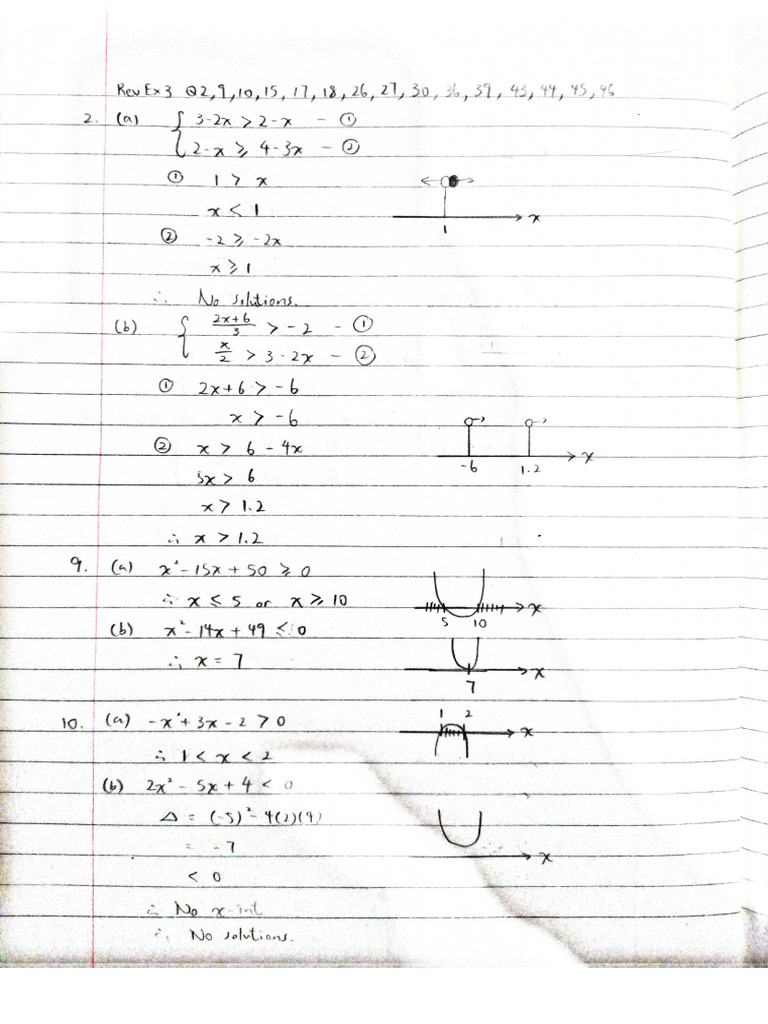 Rev Ex 3 Q2, 9, 10, 15, 17, 18, 26, 27, 30, 36, 39, 43, 44, 45, 46
2. (a) { 3-2x > 2-x - ①
2-x ≥ 4-3x - ②
① 1 > x
x < 1
1 x
② -2 ≥ -2x
x ≥ 1
∴ No solutions.
(b) { (2x+6)/3 > -2 - ①
x/2 > 3-2x - ②
① 2x+6 > -6
x > -6
② x > 6 - 4x
-6 1.2 x
5x > 6
x > 1.2
∴ x > 1.2
9. (a) x² - 15x + 50 ≥ 0
∴ x ≤ 5 or x ≥ 10
5 10 x
(b) x² - 14x + 49 ≤ 0
∴ x = 7
7 x
10. (a) -x² + 3x - 2 > 0
1 2 x
∴ 1 < x < 2
(b) 2x² - 5x + 4 < 0
Δ = (-5)² - 4(2)(4)
= -7
x
< 0
∴ No x-int
∴ No solutions.